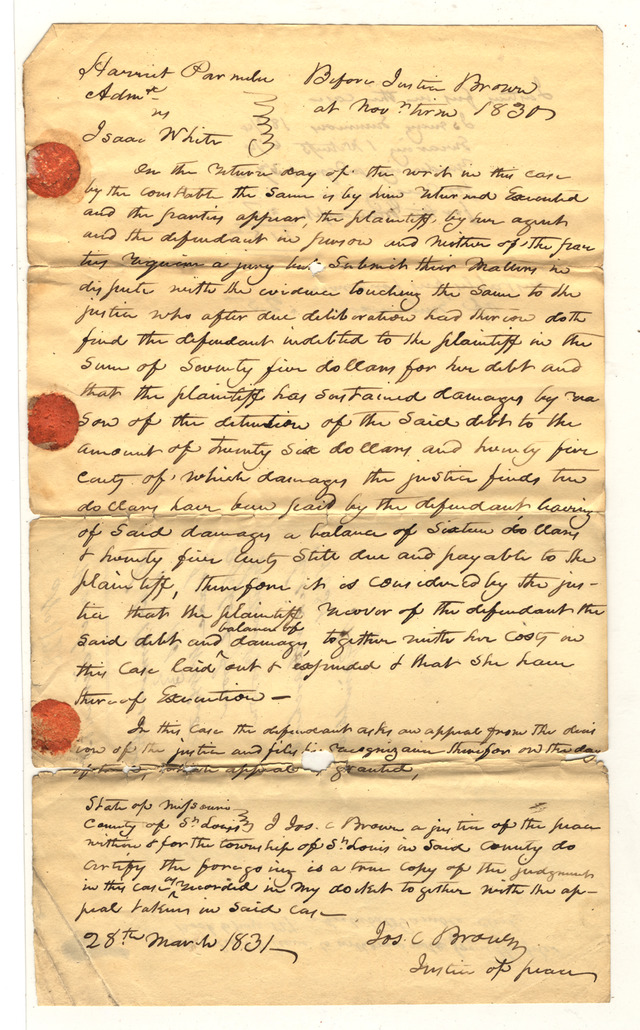 Harriet Parmelee Before Justice Brown
Admrx at Novr term 1830
vs
Isaac White
On the return day of the writ in this case
by the constable the same is by him returned Executed
and the parties appear, the plaintiff by her agent
and the defendant in person and neither of the par
ties require a jury but Submit their Matters in
dispute with the evidence touching the Same to the
justice who after due deliberation had thereon doth
find the defendant indebted to the plaintiff in the
Sum of Seventy five dollars for her debt and
that the plaintiff has Sustained damages by rea
son of the detention of the Said debt to the
amount of twenty Six dollars and twenty five
Cents of which damages the justice finds ten
dollars have been paid by the defendant leaving
of Said damages a balance of Sixteen dollars
& twenty five Cents Still due and payable to the
plaintiff, therefore it is Considered by the jus-
tice that the plaintiff recover of the defendant the
Said debt and balance of damages, together with her Costs in
this Case laid out & expended & that She have
thereof Execution —
In this case the defendant asks an appeal from the decis
ion of the justice and files his recognizance therefor on the day
appeal is granted,
State of Missouri
County of St Louis I Jos. C Brown a justice of the peace
within & for the township of St Louis in Said County do
Certify the foregoing is a true Copy of the judgment
in this Case as recorded in my docket together with the ap-
peal taken in Said Case
28th March 1831 Jos. C Brown
Justice of peace